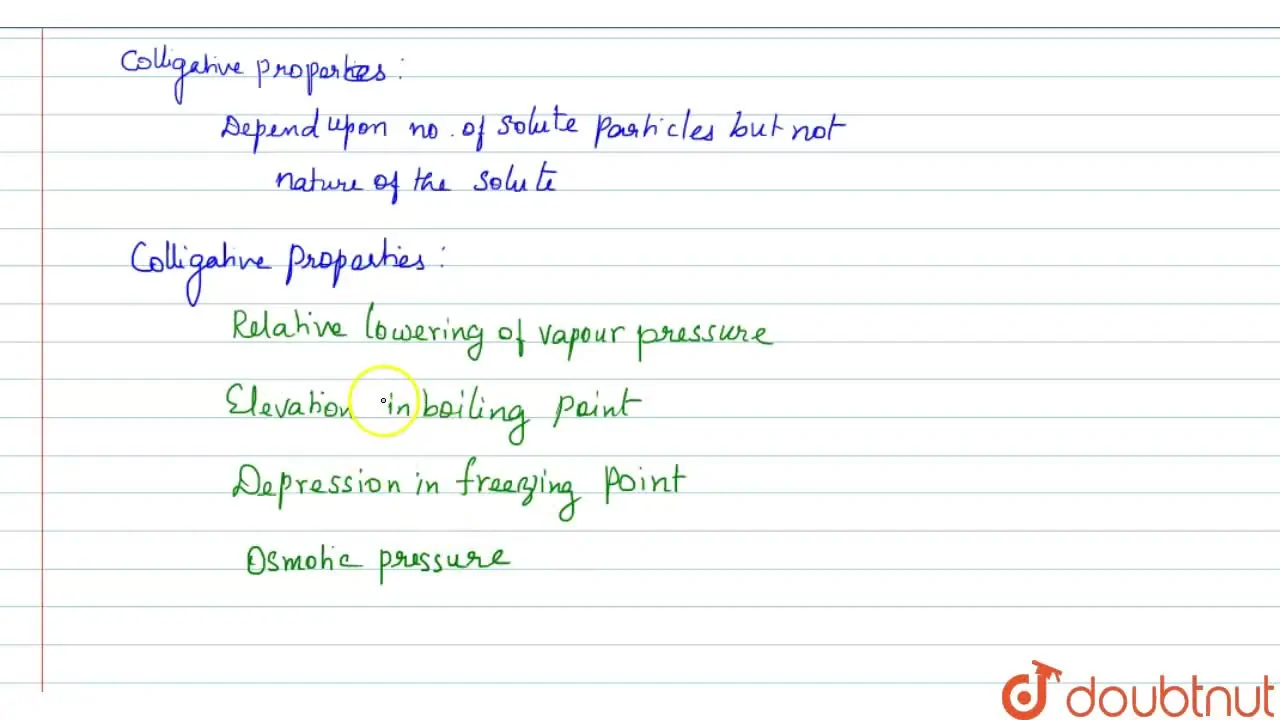 Colligative properties:
Depend upon no. of solute particles but not
nature of the solute
Colligative Properties:
Relative lowering of vapour pressure
Elevation in boiling point
Depression in freezing point
Osmotic pressure
doubtnut